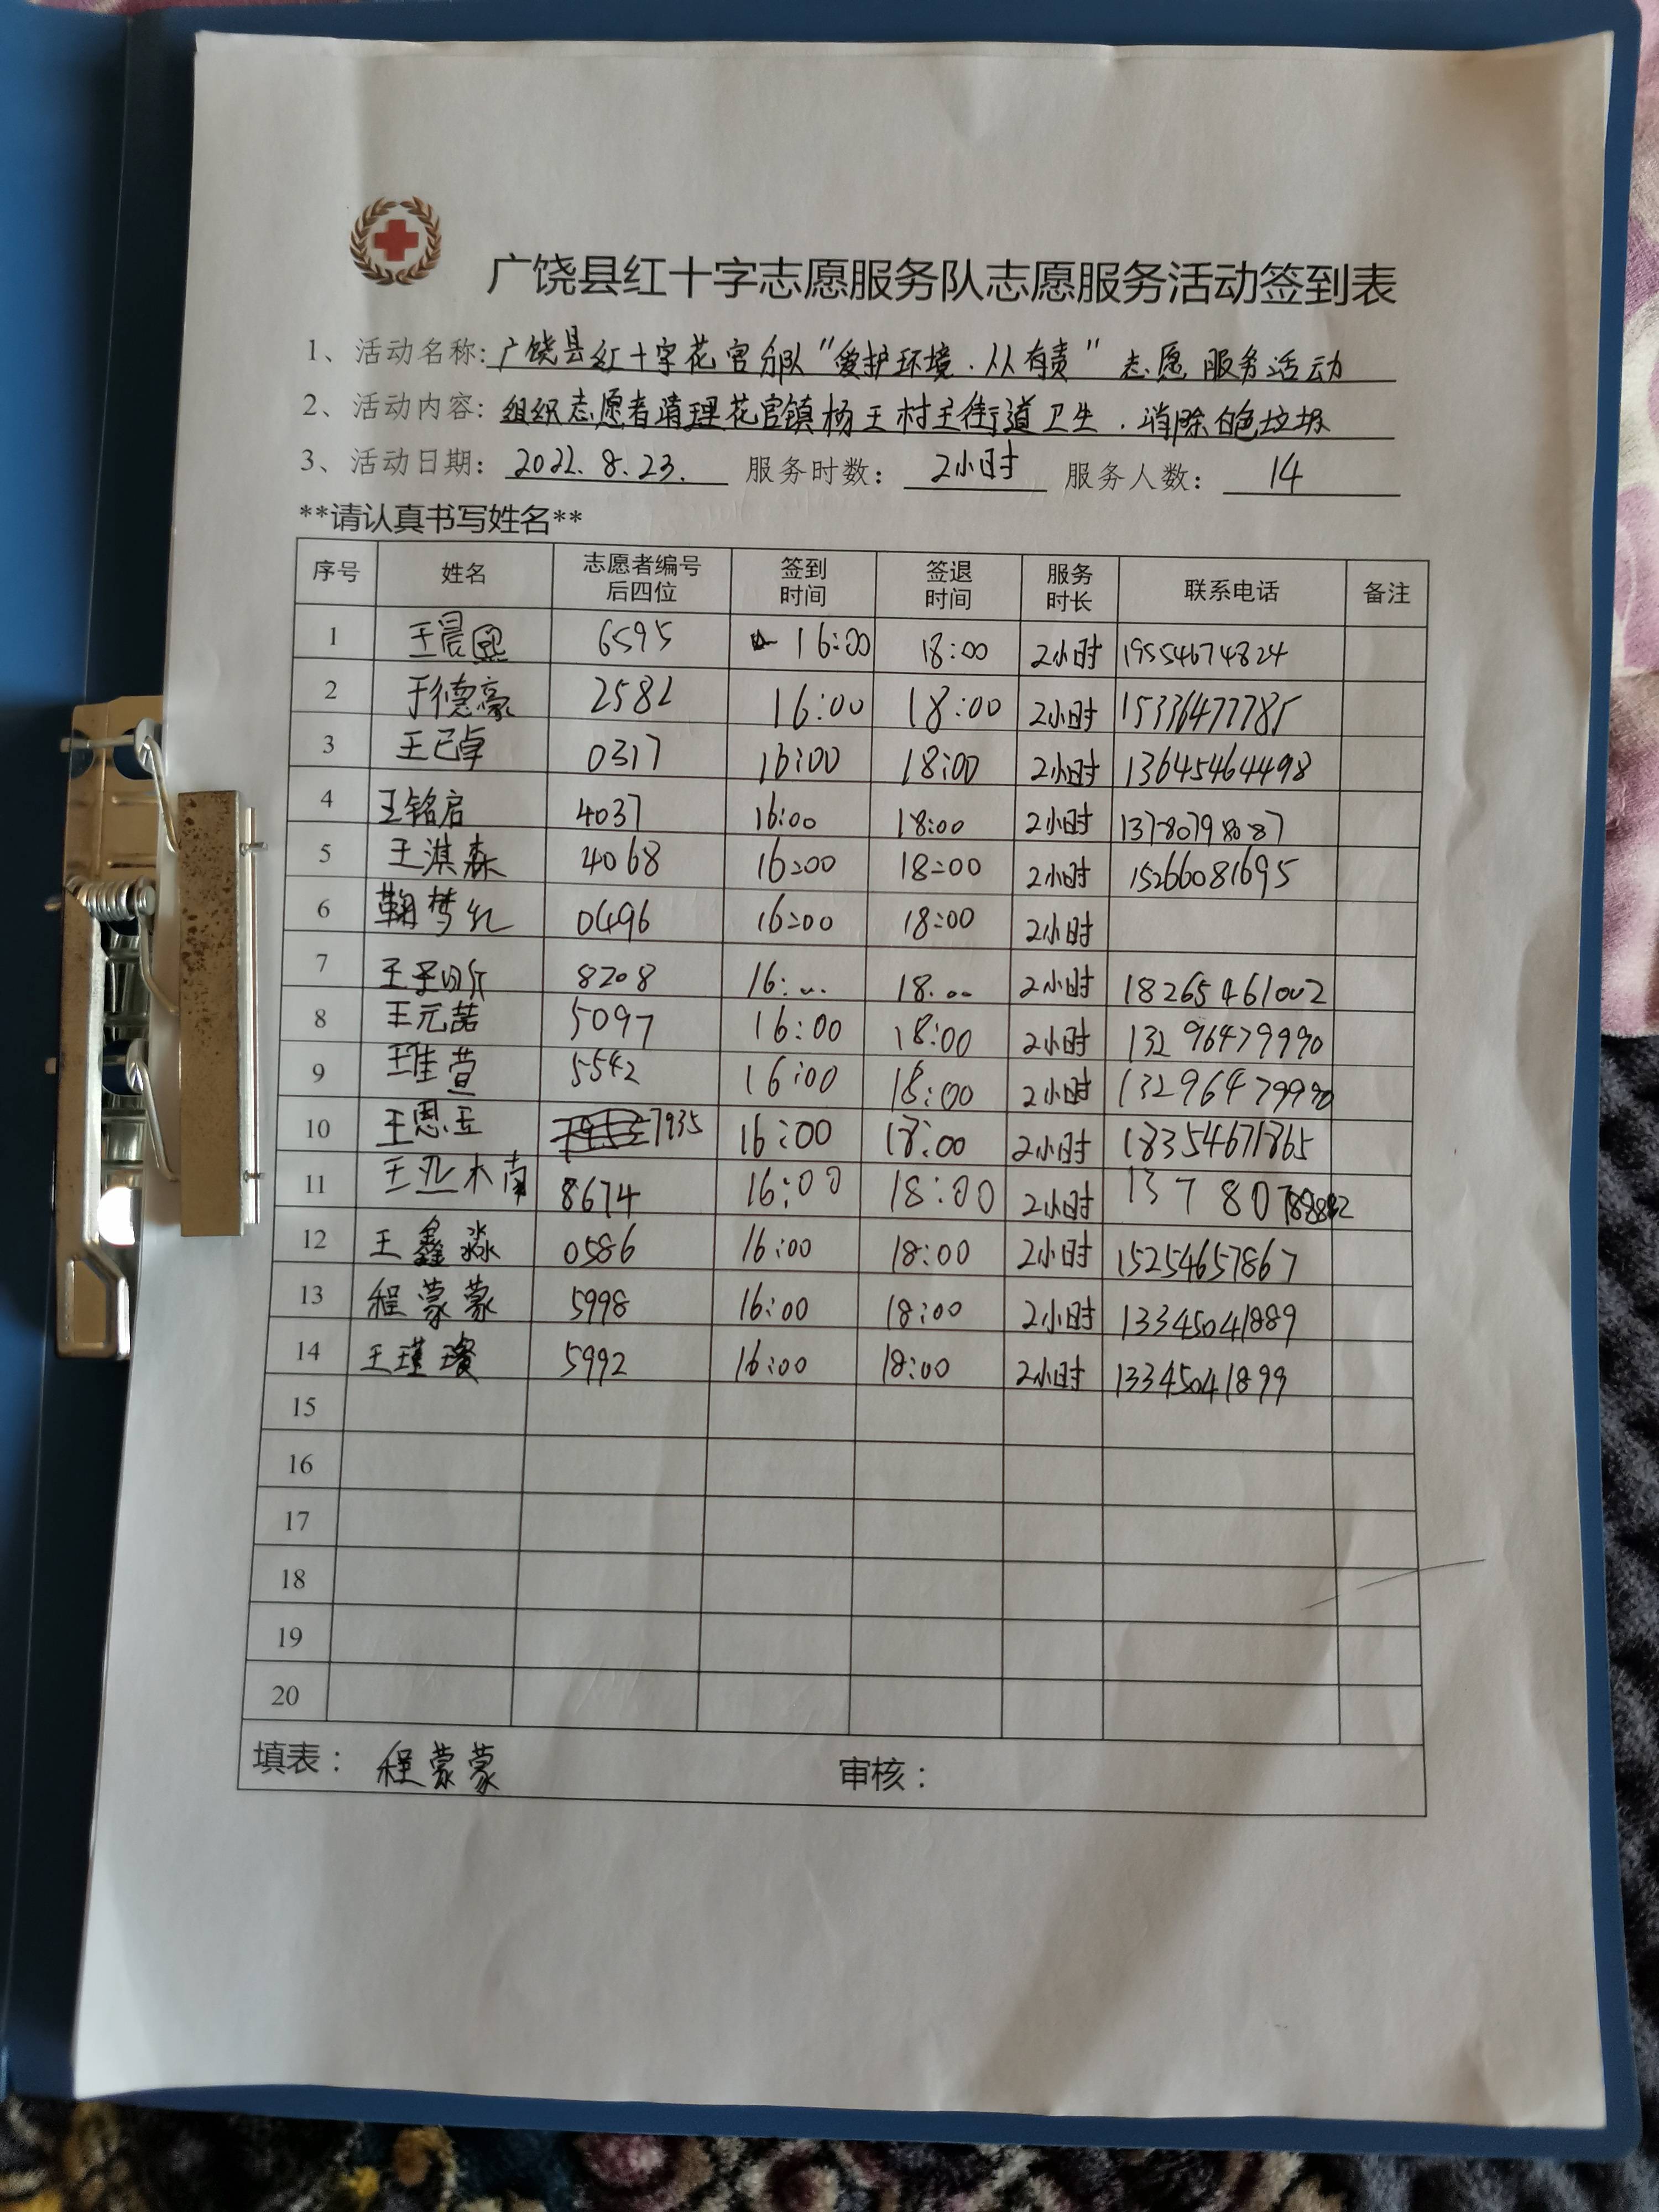 广饶县红十字志愿服务队志愿服务活动签到表
1、活动名称:广饶县红十字花官分队“爱护环境.人人有责”志愿服务活动
2、活动内容:组织志愿者清理花官镇杨王村主街道卫生.消除白色垃圾
3、活动日期:2022.8.23. 服务时数:2小时 服务人数:14
**请认真书写姓名**
序号 姓名 志愿者编号后四位 签到时间 签退时间 服务时长 联系电话 备注
1 王晨 6595 16:00 18:00 2小时 19554674824
2 于德豪 2582 16:00 18:00 2小时 15336477785
3 王已卓 0317 16:00 18:00 2小时 13645464498
4 王铭启 4037 16:00 18:00 2小时 13780798087
5 王淇森 4068 16:00 18:00 2小时 15266081695
6 鞠梦 0496 16:00 18:00 2小时
7 王子昕 8208 16: 18. 2小时 18265461002
8 王元喆 5097 16:00 18:00 2小时 13296479990
9 王佳萱 5542 16:00 18:00 2小时 13296479990
10 王恩玉 7935 16:00 18:00 2小时 18354671865
11 王亚楠 8674 16:00 18:00 2小时
12 王鑫淼 0586 16:00 18:00 2小时 15254657867
13 程蒙蒙 5998 16:00 18:00 2小时 13345041889
14 王瑾璨 5992 16:00 18:00 2小时 13345041899
15
16
17
18
19
20
填表: 程蒙蒙 审核: